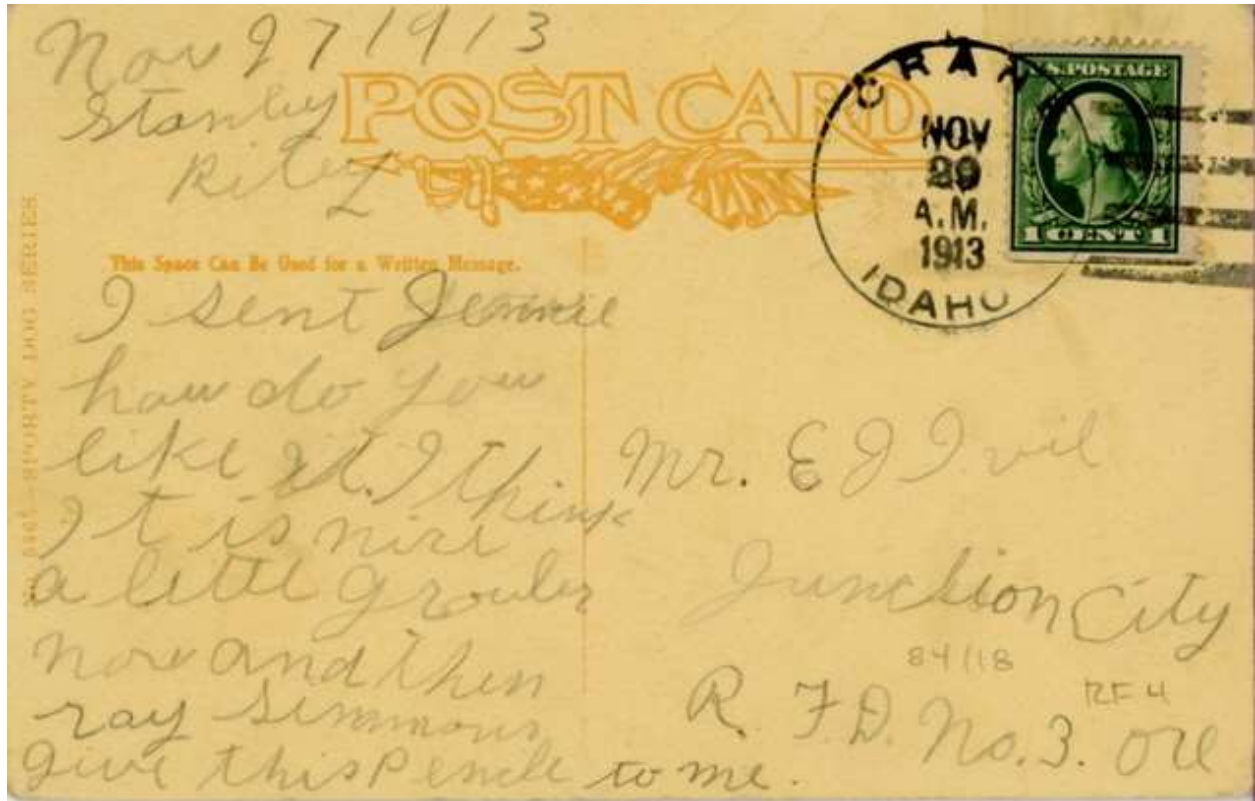 Nov 27 1913
Stanley
Riley
POST CARD
CRANE
NOV
29
A.M.
1913
IDAHO
U.S. POSTAGE
1 CENT 1
This Space Can Be Used for a Written Message.
SPORTY DOG SERIES
I sent Jennie
how do you
like it. I think
It is nice
a little growler
now and then
ray Simmons
give this Pencle to me.
Mr. E J Ivil
Junction City
84/18
RF4
R. F. D. No. 3. Ore